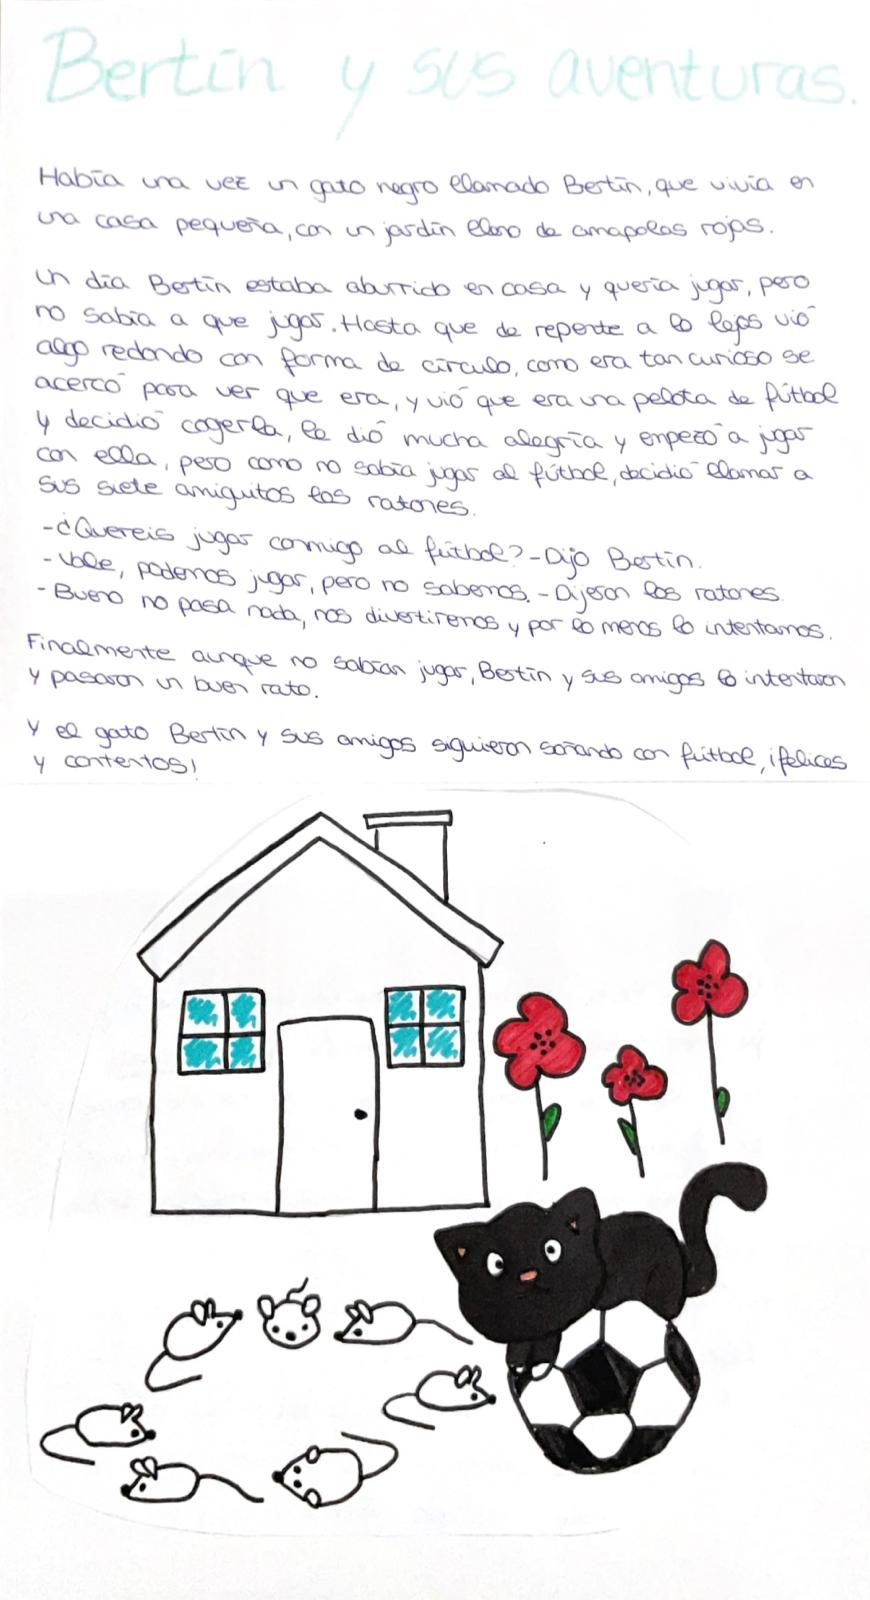 Bertín y sus aventuras.
Había una vez un gato negro llamado Bertín, que vivía en
una casa pequeña, con un jardín lleno de amapolas rojas.
Un día Bertín estaba aburrido en casa y quería jugar, pero
no sabía a que jugar. Hasta que de repente a lo lejos vió
algo redondo con forma de círculo, como era tan curioso se
acercó para ver que era, y vió que era una pelota de fútbol
y decidió cogerla, le dió mucha alegría y empezó a jugar
con ella, pero como no sabía jugar al fútbol, decidió llamar a
sus siete amiguitos los ratones.
-¿Quereis jugar conmigo al fútbol? -Dijo Bertín.
-Vale, podemos jugar, pero no sabemos. -Dijeron los ratones.
-Bueno no pasa nada, nos divertiremos y por lo menos lo intentamos.
Finalmente aunque no sabían jugar, Bertín y sus amigos lo intentaron
y pasaron un buen rato.
Y el gato Bertín y sus amigos siguieron soñando con fútbol, ¡felices
y contentos!